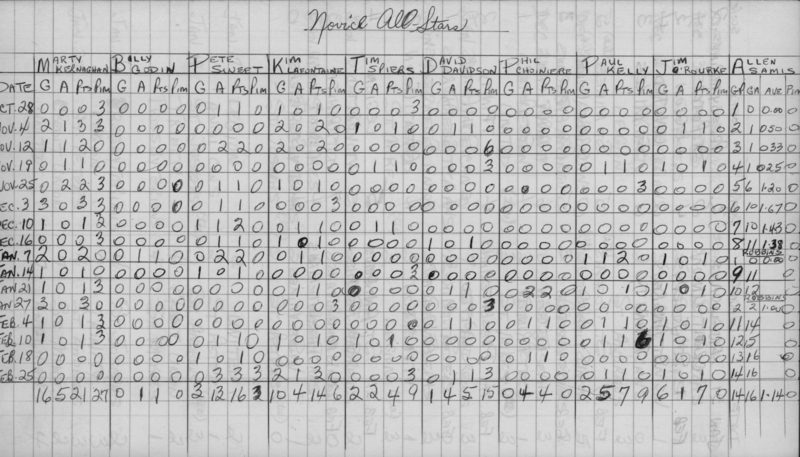 Novice All-Stars
MARTY KERNAGHAN BILLY GODIN PETE SWEET KIM LAFONTAINE TIM SPIERS DAVID DAVIDSON PHIL CHOINIERE PAUL KELLY JIM O'ROURKE ALLEN SAMIS
DATE G A Pts Pim G A Pts Pim G A Pts Pim G A Pts Pim G A Pts Pim G A Pts Pim G A Pts Pim G A Pts Pim G A Pts Pim GP GA AVE Pim
OCT. 28 0 0 0 3 0 0 0 0 0 1 1 0 1 0 1 0 0 0 0 3 0 0 0 0 0 0 0 0 0 0 0 0 0 0 0 0 1 0 0.00 0
NOV. 4 2 1 3 3 0 0 0 0 0 0 0 0 2 0 2 0 1 0 1 0 0 1 1 0 0 0 0 0 0 0 0 0 0 1 1 0 2 1 0.50 0
NOV. 12 1 1 2 0 0 0 0 0 0 2 2 0 2 0 2 0 0 0 0 0 0 0 0 6 0 0 0 0 0 0 0 0 0 0 0 0 3 1 0.33 0
NOV. 19 0 1 1 0 0 0 0 0 0 0 0 0 0 0 0 0 0 1 1 0 0 0 0 3 0 0 0 0 0 1 1 0 1 0 1 0 4 1 0.25 0
NOV. 25 0 2 2 3 0 0 0 0 0 1 1 0 1 0 1 0 0 0 0 0 0 0 0 0 0 0 0 0 0 0 0 3 0 0 0 0 5 6 1.20 0
DEC. 3 3 0 3 3 0 0 0 0 0 1 1 0 0 0 0 3 0 0 0 0 0 0 0 0 0 0 0 0 0 0 0 0 0 0 0 0 6 10 1.67 0
DEC. 10 1 0 1 3 0 0 0 0 1 1 2 0 0 1 1 0 0 1 1 0 0 0 0 0 0 0 0 0 0 0 0 0 0 0 0 0 7 10 1.43 0
DEC. 16 0 0 0 3 0 0 0 0 0 1 1 0 1 0 1 0 0 0 0 0 1 0 1 0 0 0 0 0 0 0 0 0 0 0 0 0 8 11 1.38 0
ROBBINS
JAN. 7 2 0 2 0 0 1 1 0 0 2 2 0 0 1 1 0 0 0 0 0 0 0 0 0 0 0 0 0 1 1 2 0 1 0 1 0 1 0 0.00 0
JAN. 14 1 0 1 0 0 0 0 0 1 0 1 0 0 0 0 0 0 0 0 3 0 0 0 0 0 0 0 0 0 0 0 0 0 0 0 0 9 11
JAN 21 1 0 1 3 0 0 0 0 0 0 0 0 0 1 1 0 0 0 0 0 0 1 1 0 0 2 2 0 0 1 1 0 1 0 1 0 10 12
ROBBINS
JAN 27 3 0 3 0 0 0 0 0 0 0 0 0 0 0 0 3 0 0 0 0 0 0 0 3 0 0 0 0 0 0 0 0 0 0 0 0 2 2 1.00 0
FEB. 4 1 0 1 3 0 0 0 0 0 0 0 0 0 0 0 0 0 0 0 0 0 1 1 0 0 1 1 0 0 1 1 0 1 0 1 0 11 14
FEB. 10 1 0 1 3 0 0 0 0 0 1 1 0 1 0 1 0 1 0 1 0 0 0 0 0 0 0 0 0 0 1 1 6 1 0 1 0 12 15
FEB. 18 0 0 0 0 0 0 0 0 1 0 1 0 0 0 0 0 0 0 0 0 0 0 0 0 0 1 1 0 0 0 0 0 0 0 0 0 13 16
FEB. 25 0 0 0 0 0 0 0 0 0 3 3 3 2 1 3 0 0 0 0 3 0 1 1 3 0 0 0 0 1 0 1 0 1 0 1 0 14 16
16 5 21 27 0 1 1 0 3 13 16 3 10 4 14 6 2 2 4 9 1 4 5 15 0 4 4 0 2 5 7 9 6 1 7 0 14 16 1.14 0